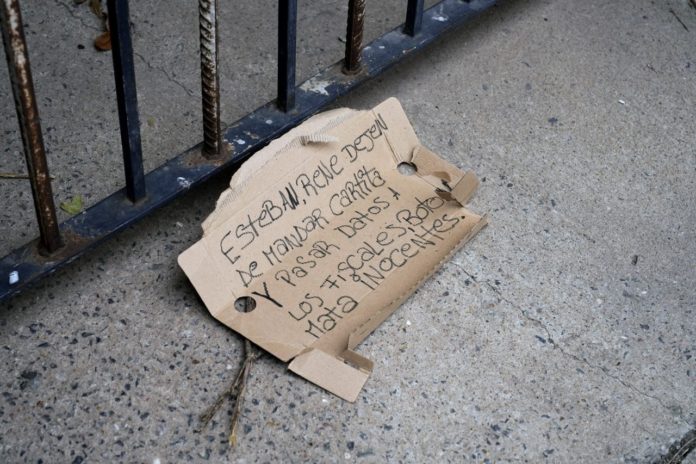 ESTEBAN, RENE DEJEN
DE MANDAR CARTITA
Y PASAR DATOS A
LOS FISCALES, BOTON
MATA INOCENTES.